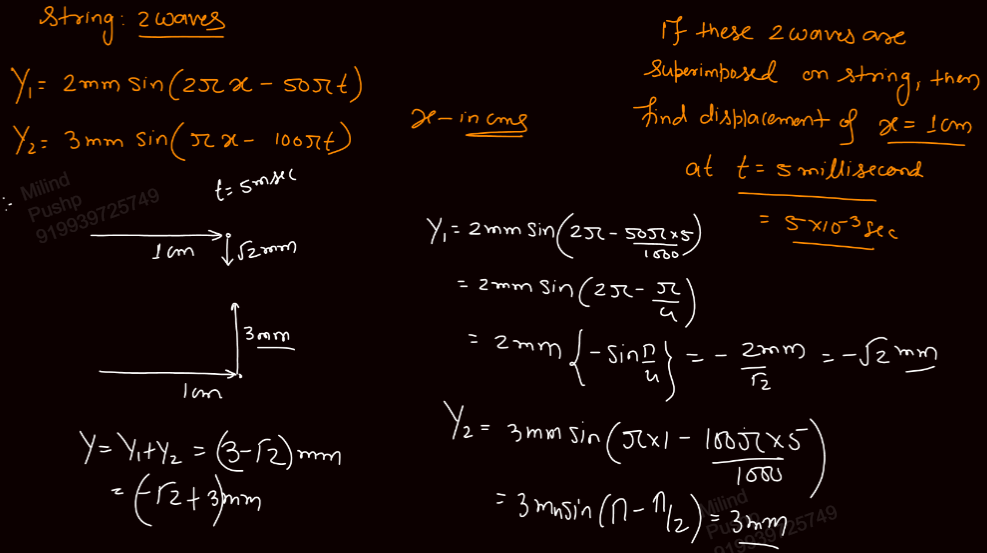 String: 2 waves
Y₁ = 2mm sin(2πx − 50πt)
Y₂ = 3mm sin(πx − 100πt)
x - in cms
If these 2 waves are
superimposed on string, then
find displacement of x = 1cm
at t = 5 millisecond
= 5×10⁻³ sec
Milind
Pushp
919939725749
t = 5msec
1cm
√2mm
3mm
1cm
Y = Y₁+Y₂ = (3-√2)mm
= (-√2+3)mm
Y₁ = 2mm sin(2π − 50π×5/1000)
= 2mm sin(2π − π/4)
= 2mm {−sin π/4} = − 2mm/√2 = −√2 mm
Y₂ = 3mm sin(π×1 − 100π×5/1000)
= 3mm sin(π − π/2) = 3mm
Milind
Pushp
919939725749